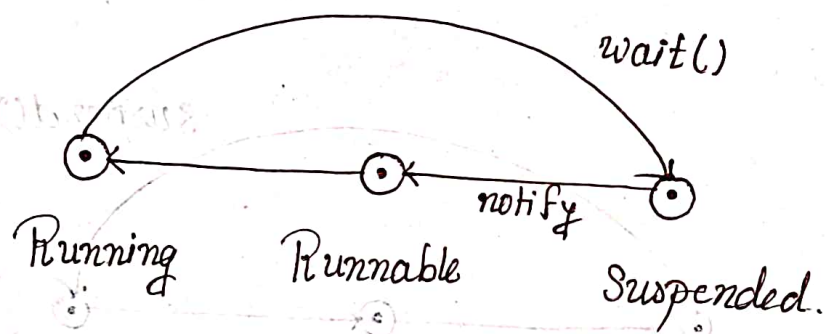 wait()
notify
Running Runnable Suspended.